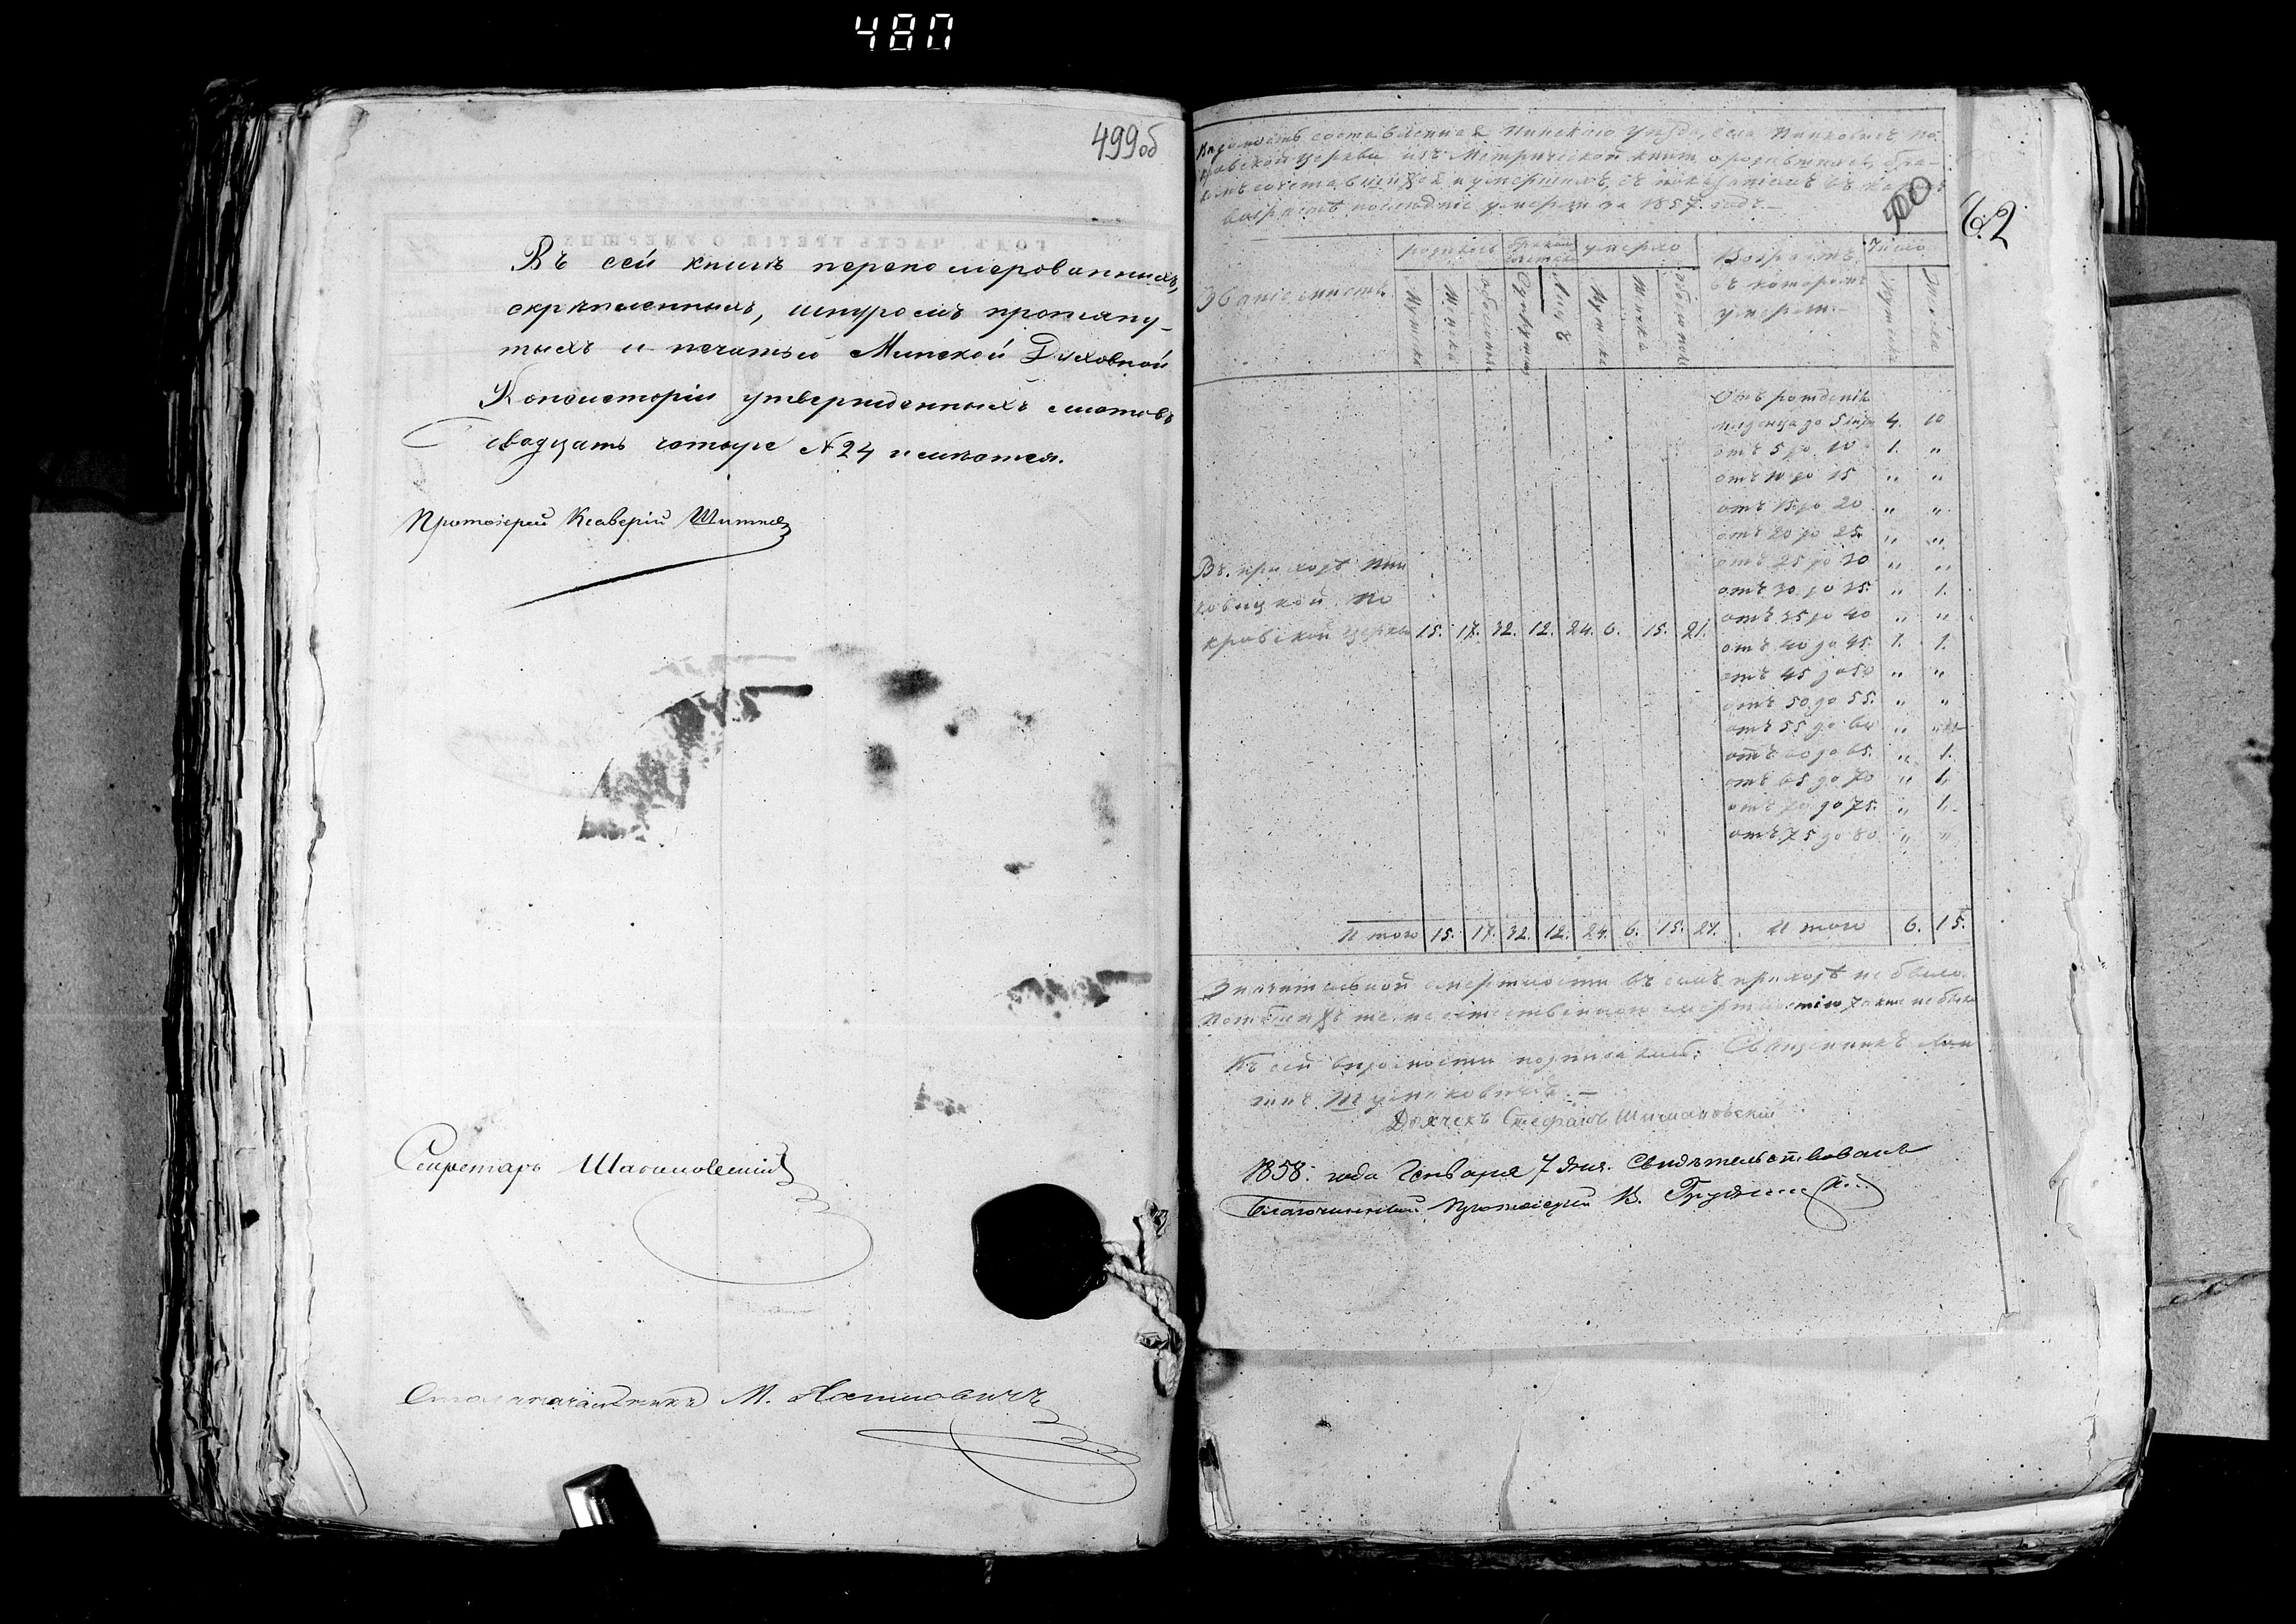 480
499об
Въ сей книгѣ перенумерованныхъ,
скрѣпленныхъ, шнуромъ протяну-
тыхъ и печатью Минской Духовной
Консисторіи утвержденныхъ листовъ
двадцать четыре №24 имѣется.
Протоіерей Ксаверій
Секретарь
Столоначальникъ М.
Вѣдомость составленная Пинскаго уѣзда, села Пинковичъ По-
кровской церкви изъ Метрической книги, о родившихся, бра-
комъ сочетавшихся и умершихъ, съ показаніемъ въ какомъ
возрастѣ послѣдніе умерли за 1857 годъ.—
500
62
родилось умерло Возрастъ Число
Званіе мѣстъ въ которомъ
умерли.—
Мужска Женска обоего пола Супружествъ Лицъ Мужска Женска обоего пола Мужска Женска
Отъ рожденія
младенца до 5 лѣтъ 4. 10
отъ 5 до 10 1. "
отъ 10 до 15 " "
отъ 15 до 20 " "
отъ 20 до 25. " "
отъ 25 до 30 " "
отъ 30 до 35. " 1.
отъ 35 до 40 " "
отъ 40 до 45. 1. 1.
отъ 45 до 50 " "
отъ 50 до 55. " "
отъ 55 до 60 " "
отъ 60 до 65. " 1.
отъ 65 до 70 " 1.
отъ 70 до 75. " 1.
отъ 75 до 80 " "
Въ приходѣ Пин
ковицкой По
кровской церкви 15. 17. 32. 12. 24. 6. 15. 21.
Итого 15. 17. 32. 12. 24. 6. 15. 21. Итого 6. 15.
Значительной смертности въ семъ приходѣ не было.
Погибшихъ же неестественною смертностію также не было
Къ сей вѣдомости подписались: Священникъ
Дьячекъ Стефанъ Шимановскій
1858: года Генваря 7 дня. Свидѣтельствовалъ
Благочинный Протоіерей В.